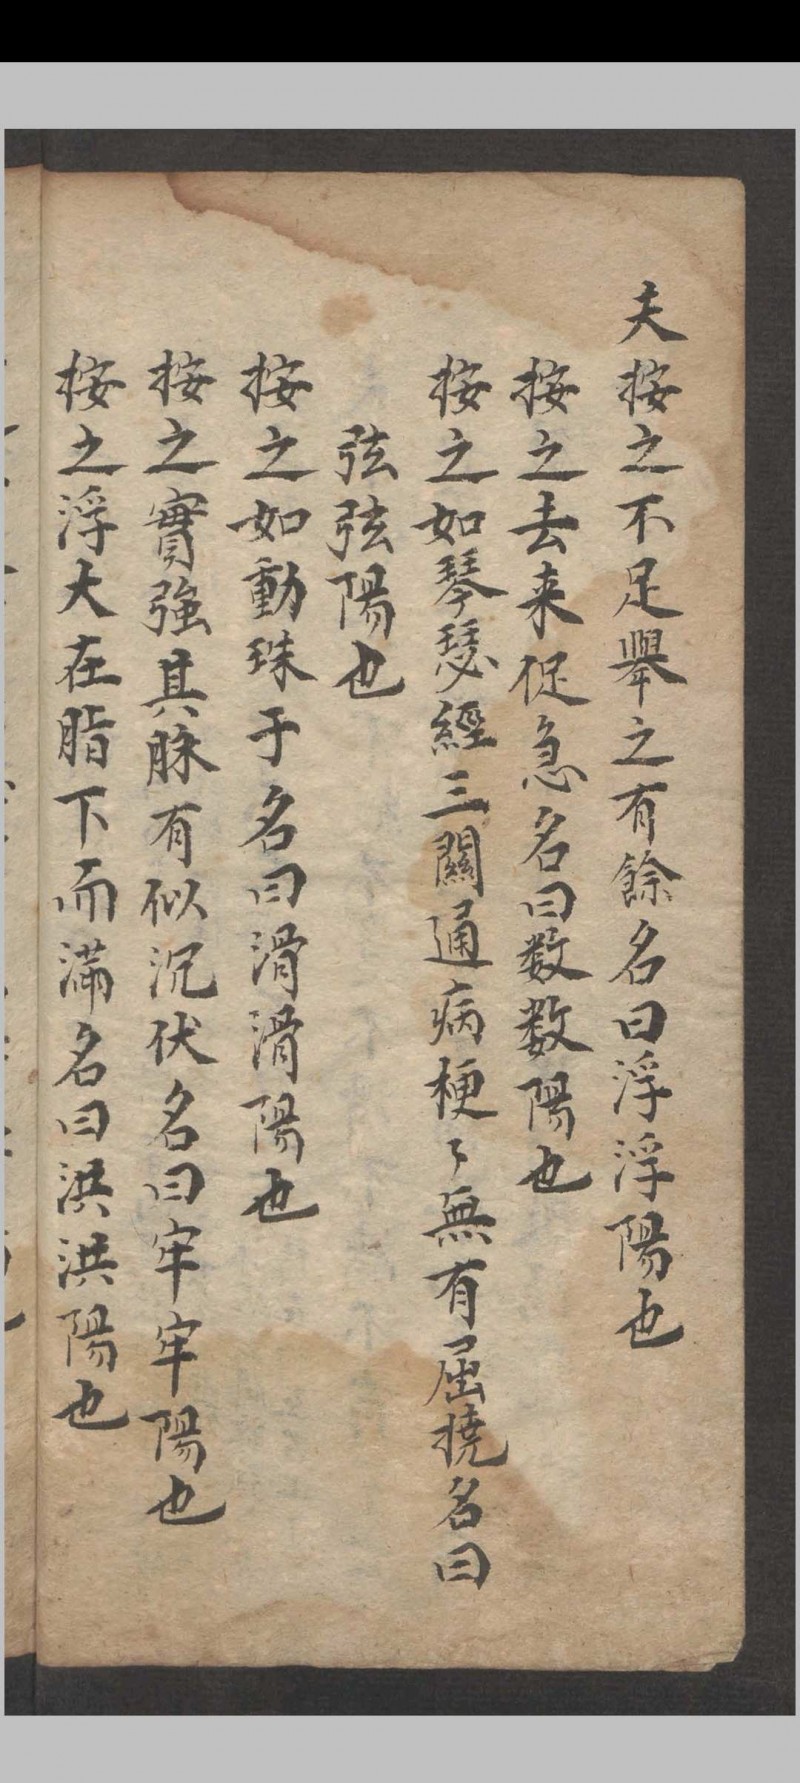 夫按之不足舉之有餘名曰浮浮陽也
按之去来促急名曰数数陽也
按之如琴瑟經三關通病梗〻無有屈撓名曰
弦弦陽也
按之如動珠子名曰滑滑陽也
按之實強其脉有似沉伏名曰牢牢陽也
按之浮大在脂下而滿名曰洪洪陽也